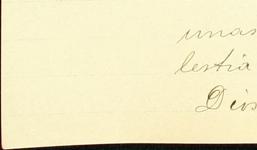 unas
lestia
Dios